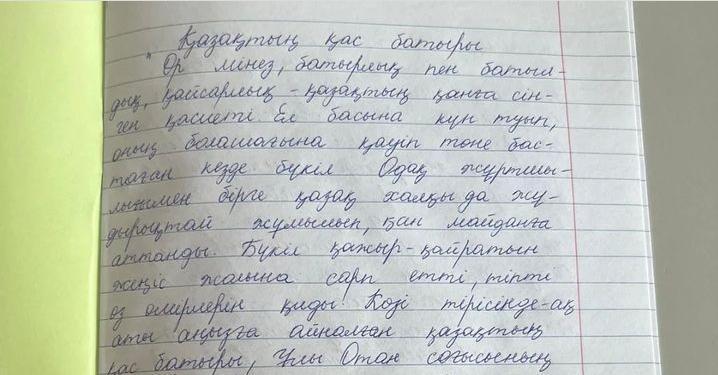 Қазақтың қас батыры
" Өр мінез, батырлық пен батыл-
дық, қайсарлық - қазақтың қанға сін-
ген қасиеті. Ел басына күн туып,
оның болашағына қауіп төне бас-
таған кезде бүкіл Одақ жұртшы-
лығымен бірге қазақ халқы да жұ-
дырықтай жұмылып, қан майданға
аттанды. Бүкіл қажыр-қайратын
жеңіс жолына сарп етті, тіпті
өз өмірлерін қиды. Көзі тірісінде-ақ
аты аңызға айналған қазақтың
қас батыры, Ұлы Отан соғысының